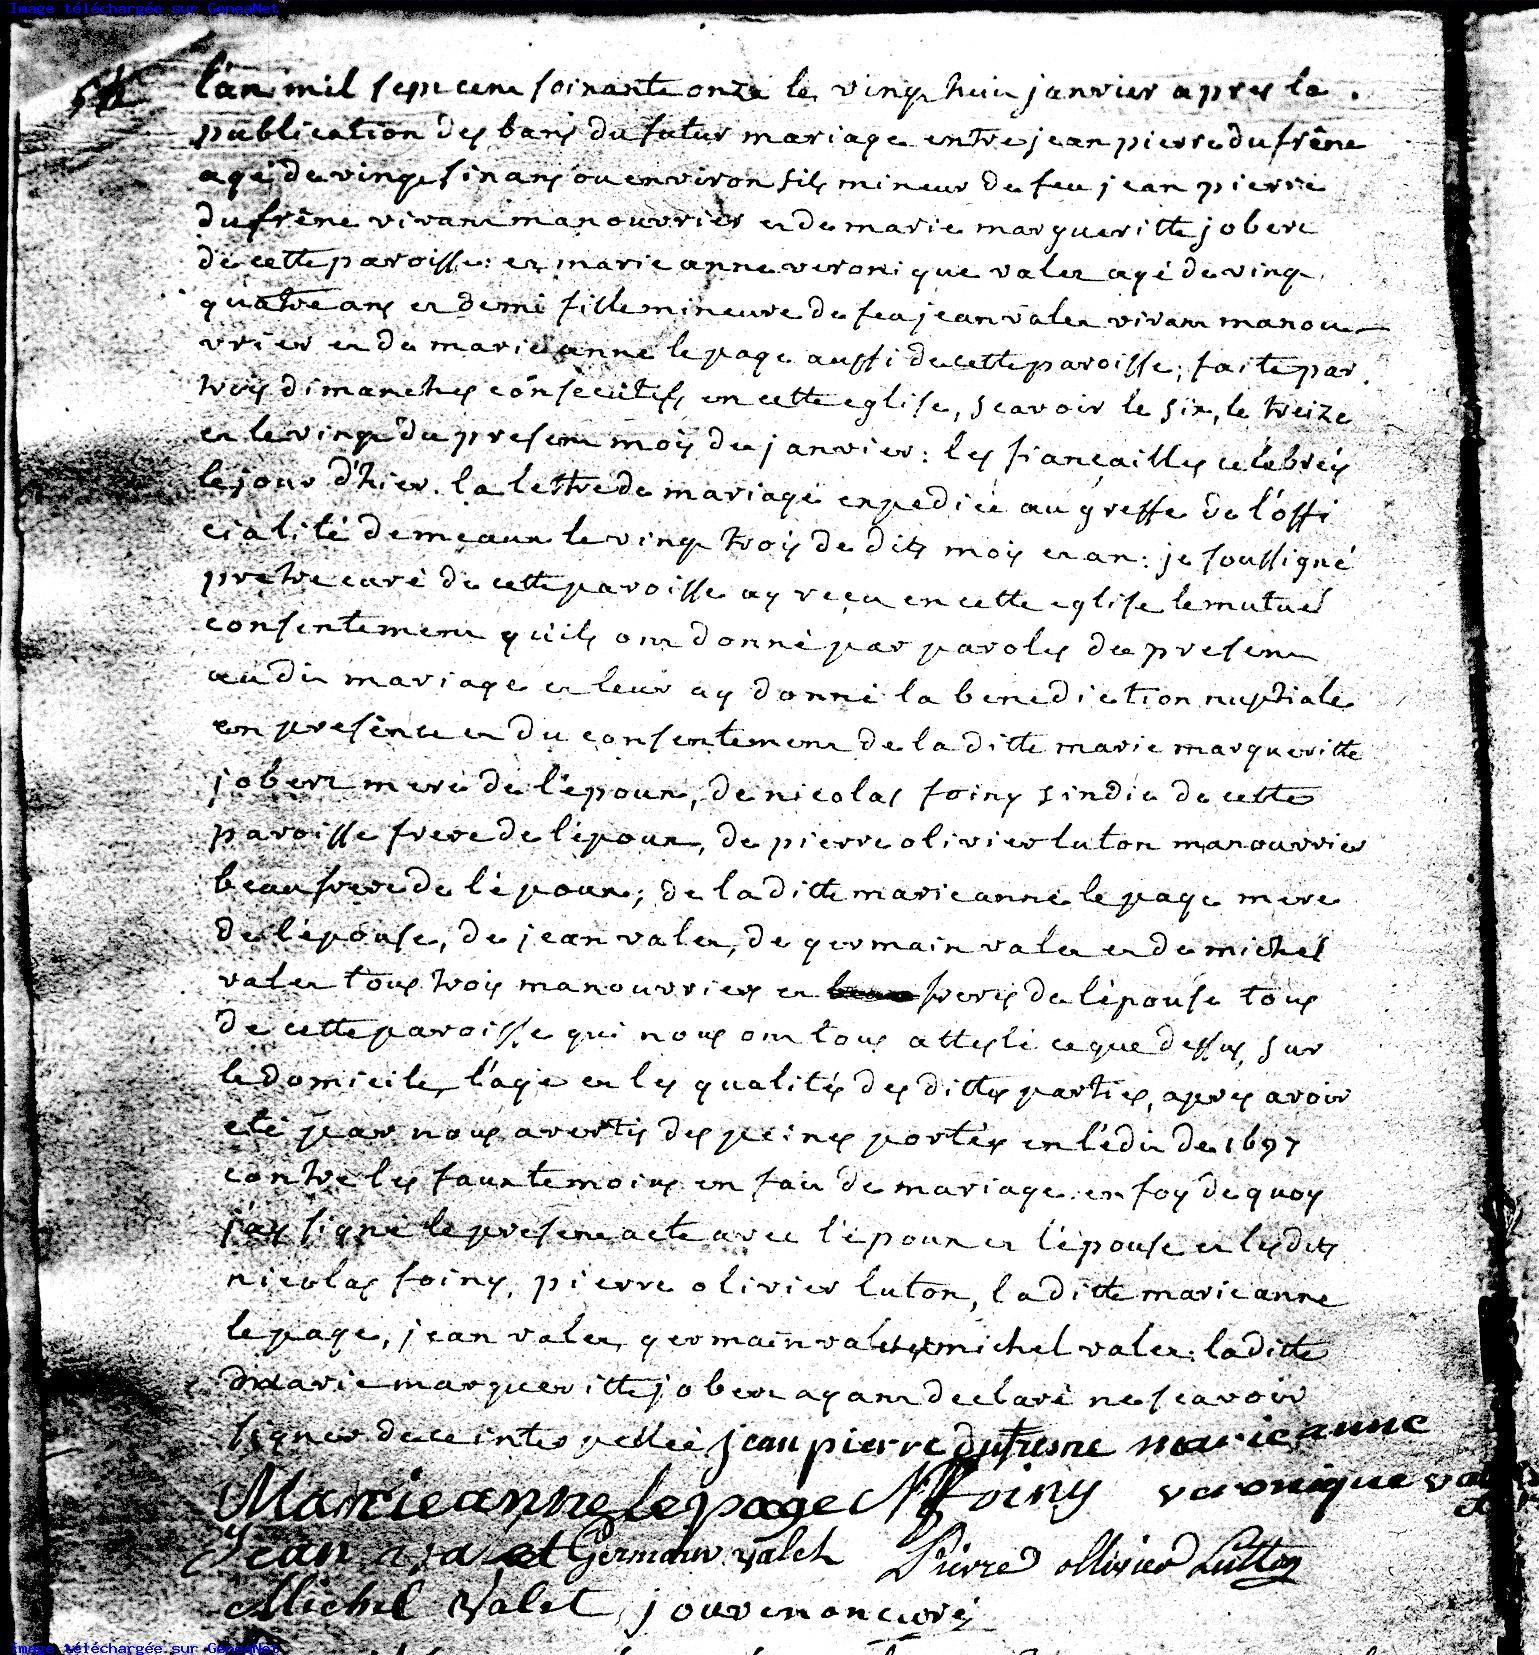 Image téléchargée sur GeneaNet
l'an mil sept cent soixante onze le vingt huit janvier apres la
publication des bans du futur mariage entre jean pierre dufrêne
agé de vingt six ans ou environ fils mineur de feu jean pierre
dufrêne vivant manouvrier et de marie margueritte jobert
de cette paroisse: et marie anne veronique valet agé de vingt
quatre ans et demi fille mineure de feu jean valet vivant manou-
vrier et de marie anne lepage aussi de cette paroisse; faite par
trois dimanches consécutifs en cette eglise, scavoir le six, le treize
et le vingt du present mois de janvier: les fiancailles célébrés
le jour d'hier. la lettre de mariage expediée au greffe de l'offi
cialité de meaux le vingt trois de dits mois et an: je soussigné
pretre curé de cette paroisse ay reçu en cette eglise le mutuel
consentement qu'ils ont donné par paroles de present
au dit mariage et leur ay donné la benediction nuptiale
en presence et du consentement de la ditte marie margueritte
jobert mere de l'époux, de nicolas foiny sindic de cette
paroisse frere de l'époux, de pierre olivier luton manouvrier
beaufrere de l'époux; de la ditte marie anne lepage mere
de l'épouse, de jean valet, de germain valet et de michel
valet tous trois manouvriers et freres de l'épouse tous
de cette paroisse qui nous ont tous attesté ce que dessus, sur
le domicile, l'age et les qualités des dittes parties, apres avoir
eté par nous avertis des peines portés en l'édit de 1697
contre les faux temoins en fait de mariage. en foy de quoy
j'ay signé le present acte avec l'époux et l'épouse et lesdits
nicolas foiny, pierre olivier luton, la ditte marie anne
lepage, jean valet, germain valet et michel valet: la ditte
marie margueritte jobert ayant declaré ne scavoir
signer de ce interpellée jean pierre dufresne marie anne
Marie anne lepage N Foiny veronique valet
Jean valet Germain valet Pierre ollivier Lutton
Michel Valet jouvenon curé
Image téléchargée sur GeneaNet